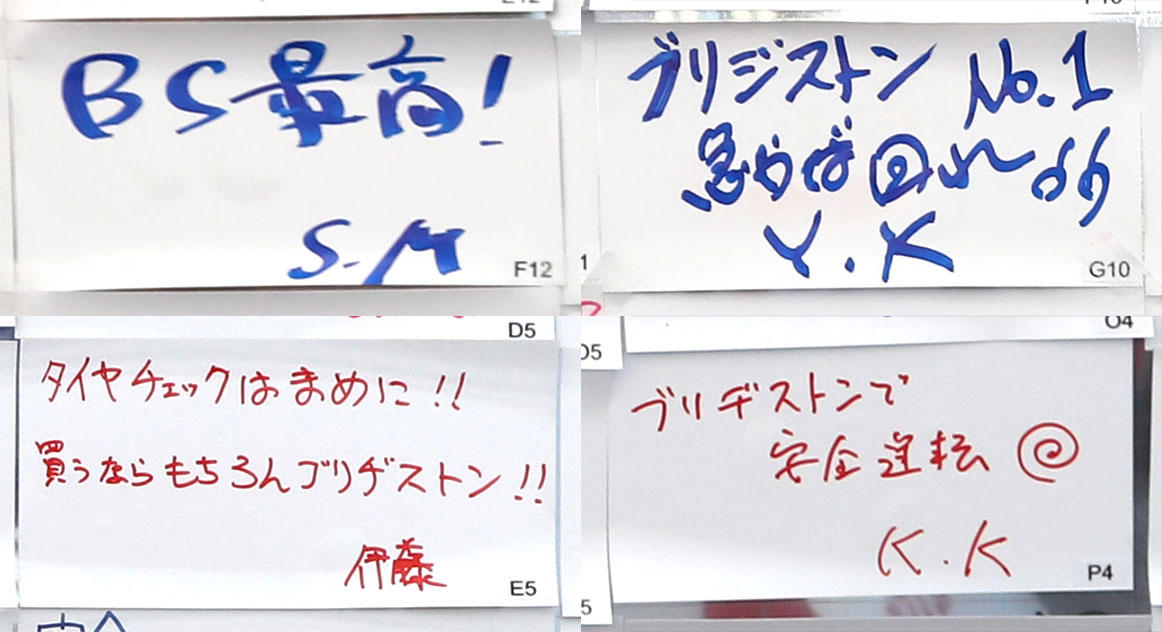 BS最高!
S.M
F12
ブリジストン No.1
急がば回れ〜
Y.K
G10
D5
タイヤチェックはまめに!!
買うならもちろんブリヂストン!!
伊藤
E5
O4
ブリヂストンで
安全運転
K.K
P4